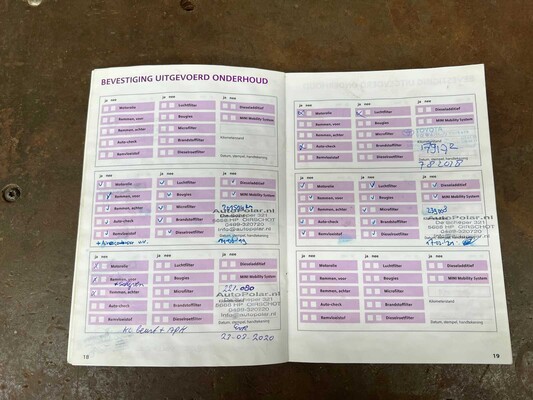 BEVESTIGING UITGEVOERD ONDERHOUD
ja nee ja nee ja nee
Motorolie Luchtfilter Dieseladditief
Remmen, voor Bougies MINI Mobility System
Remmen, achter Microfilter
Auto-check Brandstoffilter Kilometerstand
Remvloeistof Dieselroetfilter
Datum, stempel, handtekening
ja nee ja nee ja nee
Motorolie Luchtfilter Dieseladditief
Remmen, voor Bougies MINI Mobility System
Remmen, achter Microfilter
AutoPolar.nl
Auto-check Brandstoffilter De Scheper 321
5688 HP OIRSCHOT
0499-320720
Remvloeistof Dieselroetfilter info@autopolar.nl
Datum, stempel, handtekening
ja nee ja nee ja nee
Motorolie Luchtfilter Dieseladditief
Remmen, voor Bougies MINI Mobility System
Remmen, achter Microfilter 221.080
AutoPolar.nl
Auto-check Brandstoffilter De Scheper 321
5688 HP OIRSCHOT
0499-320720
Remvloeistof Dieselroetfilter info@autopolar.nl
Datum, stempel, handtekening
23-02-2020
18
ja nee ja nee ja nee
Motorolie Luchtfilter Dieseladditief
Remmen, voor Bougies MINI Mobility System
Remmen, achter Microfilter
Auto-check Brandstoffilter
Remvloeistof Dieselroetfilter
Datum, stempel, handtekening
7 8 2018
ja nee ja nee ja nee
Motorolie Luchtfilter Dieseladditief
Remmen, voor Bougies MINI Mobility System
Remmen, achter Microfilter
AutoPolar.nl
Auto-check Brandstoffilter De Scheper 321
5688 HP OIRSCHOT
0499-320720
Remvloeistof Dieselroetfilter info@autopolar.nl
ja nee ja nee ja nee
Motorolie Luchtfilter Dieseladditief
Remmen, voor Bougies MINI Mobility System
Remmen, achter Microfilter
Auto-check Brandstoffilter Kilometerstand
Remvloeistof Dieselroetfilter
Datum, stempel, handtekening
19